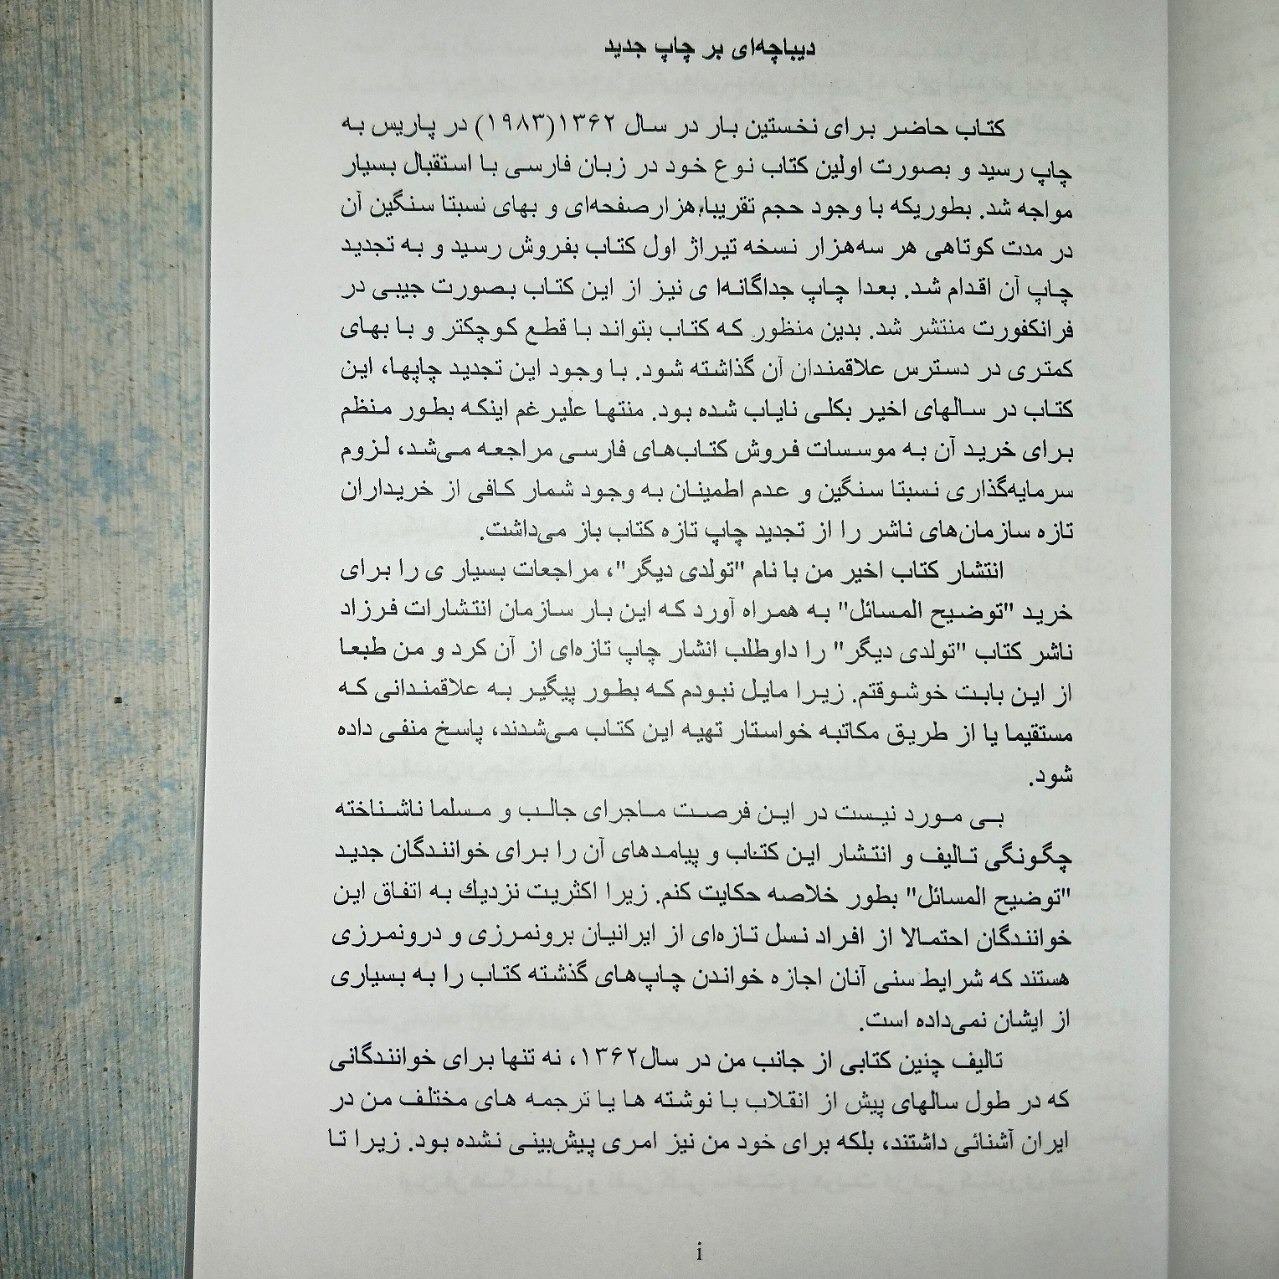 دیباچه‌ای بر چاپ جدید
کتاب حاضر برای نخستین بار در سال ۱۳۶۲(۱۹۸۳) در پاریس به
چاپ رسید و بصورت اولین کتاب نوع خود در زبان فارسی با استقبال بسیار
مواجه شد. بطوریکه با وجود حجم تقریبا،هزارصفحه‌ای و بهای نسبتا سنگین آن
در مدت کوتاهی هر سه‌هزار نسخه تیراژ اول کتاب بفروش رسید و به تجدید
چاپ آن اقدام شد. بعدا چاپ جداگانه‌ا ی نیز از این کتاب بصورت جیبی در
فرانکفورت منتشر شد. بدین منظور که کتاب بتواند با قطع کوچکتر و با بهای
کمتری در دسترس علاقمندان آن گذاشته شود. با وجود این تجدید چاپها، این
کتاب در سالهای اخیر بکلی نایاب شده بود. منتها علیرغم اینکه بطور منظم
برای خرید آن به موسسات فروش کتاب‌های فارسی مراجعه می‌شد، لزوم
سرمایه‌گذاری نسبتا سنگین و عدم اطمینان به وجود شمار کافی از خریداران
تازه سازمان‌های ناشر را از تجدید چاپ تازه کتاب باز می‌داشت.
انتشار کتاب اخیر من با نام "تولدی دیگر"، مراجعات بسیار ی را برای
خرید "توضیح المسائل" به همراه آورد که این بار سازمان انتشارات فرزاد
ناشر کتاب "تولدی دیگر" را داوطلب انشار چاپ تازه‌ای از آن کرد و من طبعا
از این بابت خوشوقتم. زیرا مایل نبودم که بطور پیگیر به علاقمندانی که
مستقیما یا از طریق مکاتبه خواستار تهیه این کتاب می‌شدند، پاسخ منفی داده
شود.
بی مورد نیست در این فرصت ماجرای جالب و مسلما ناشناخته
چگونگی تالیف و انتشار این کتاب و پیامدهای آن را برای خوانندگان جدید
"توضیح المسائل" بطور خلاصه حکایت کنم. زیرا اکثریت نزدیك به اتفاق این
خوانندگان احتمالا از افراد نسل تازه‌ای از ایرانیان برونمرزی و درونمرزی
هستند که شرایط سنی آنان اجازه خواندن چاپ‌های گذشته کتاب را به بسیاری
از ایشان نمی‌داده است.
تالیف چنین کتابی از جانب من در سال۱۳۶۲، نه تنها برای خوانندگانی
که در طول سالهای پیش از انقلاب با نوشته ها یا ترجمه های مختلف من در
ایران آشنائی داشتند، بلکه برای خود من نیز امری پیش‌بینی نشده بود. زیرا تا
i